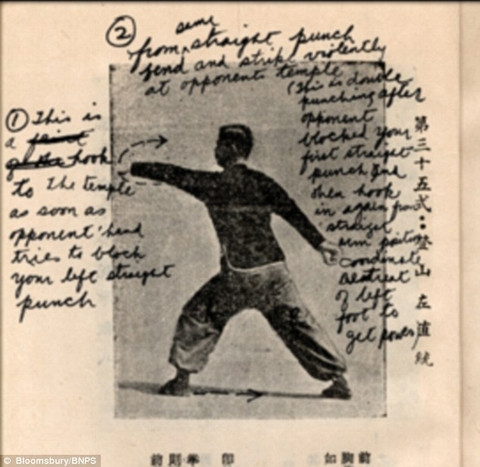 ②
same
from straight punch
bend and strike violently
at opponents temple
① This is
a
hook
to the temple
as soon as
opponent' hand
tries to block
your left straight
punch
(This is double
punching after
opponent
blocked your
first straight
punch and
then hook
in again from
straight
arm position
coordinate
of left
foot to
get power)
第三十五式：登山左直統
如胸前
© Bloomsbury/BNPS